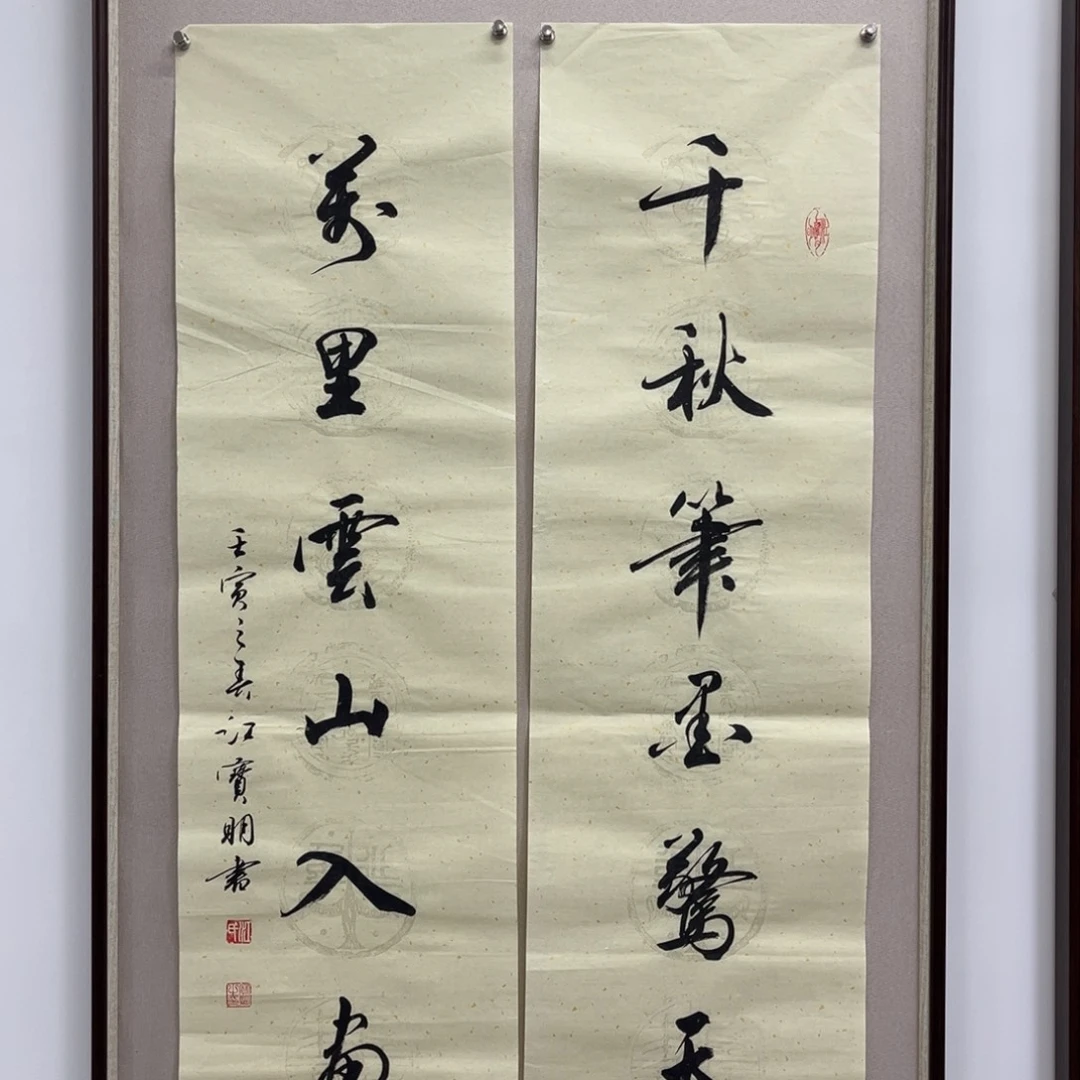 千秋筆墨驚天
萬里雲山入畫
壬寅之春江寶明書
江氏